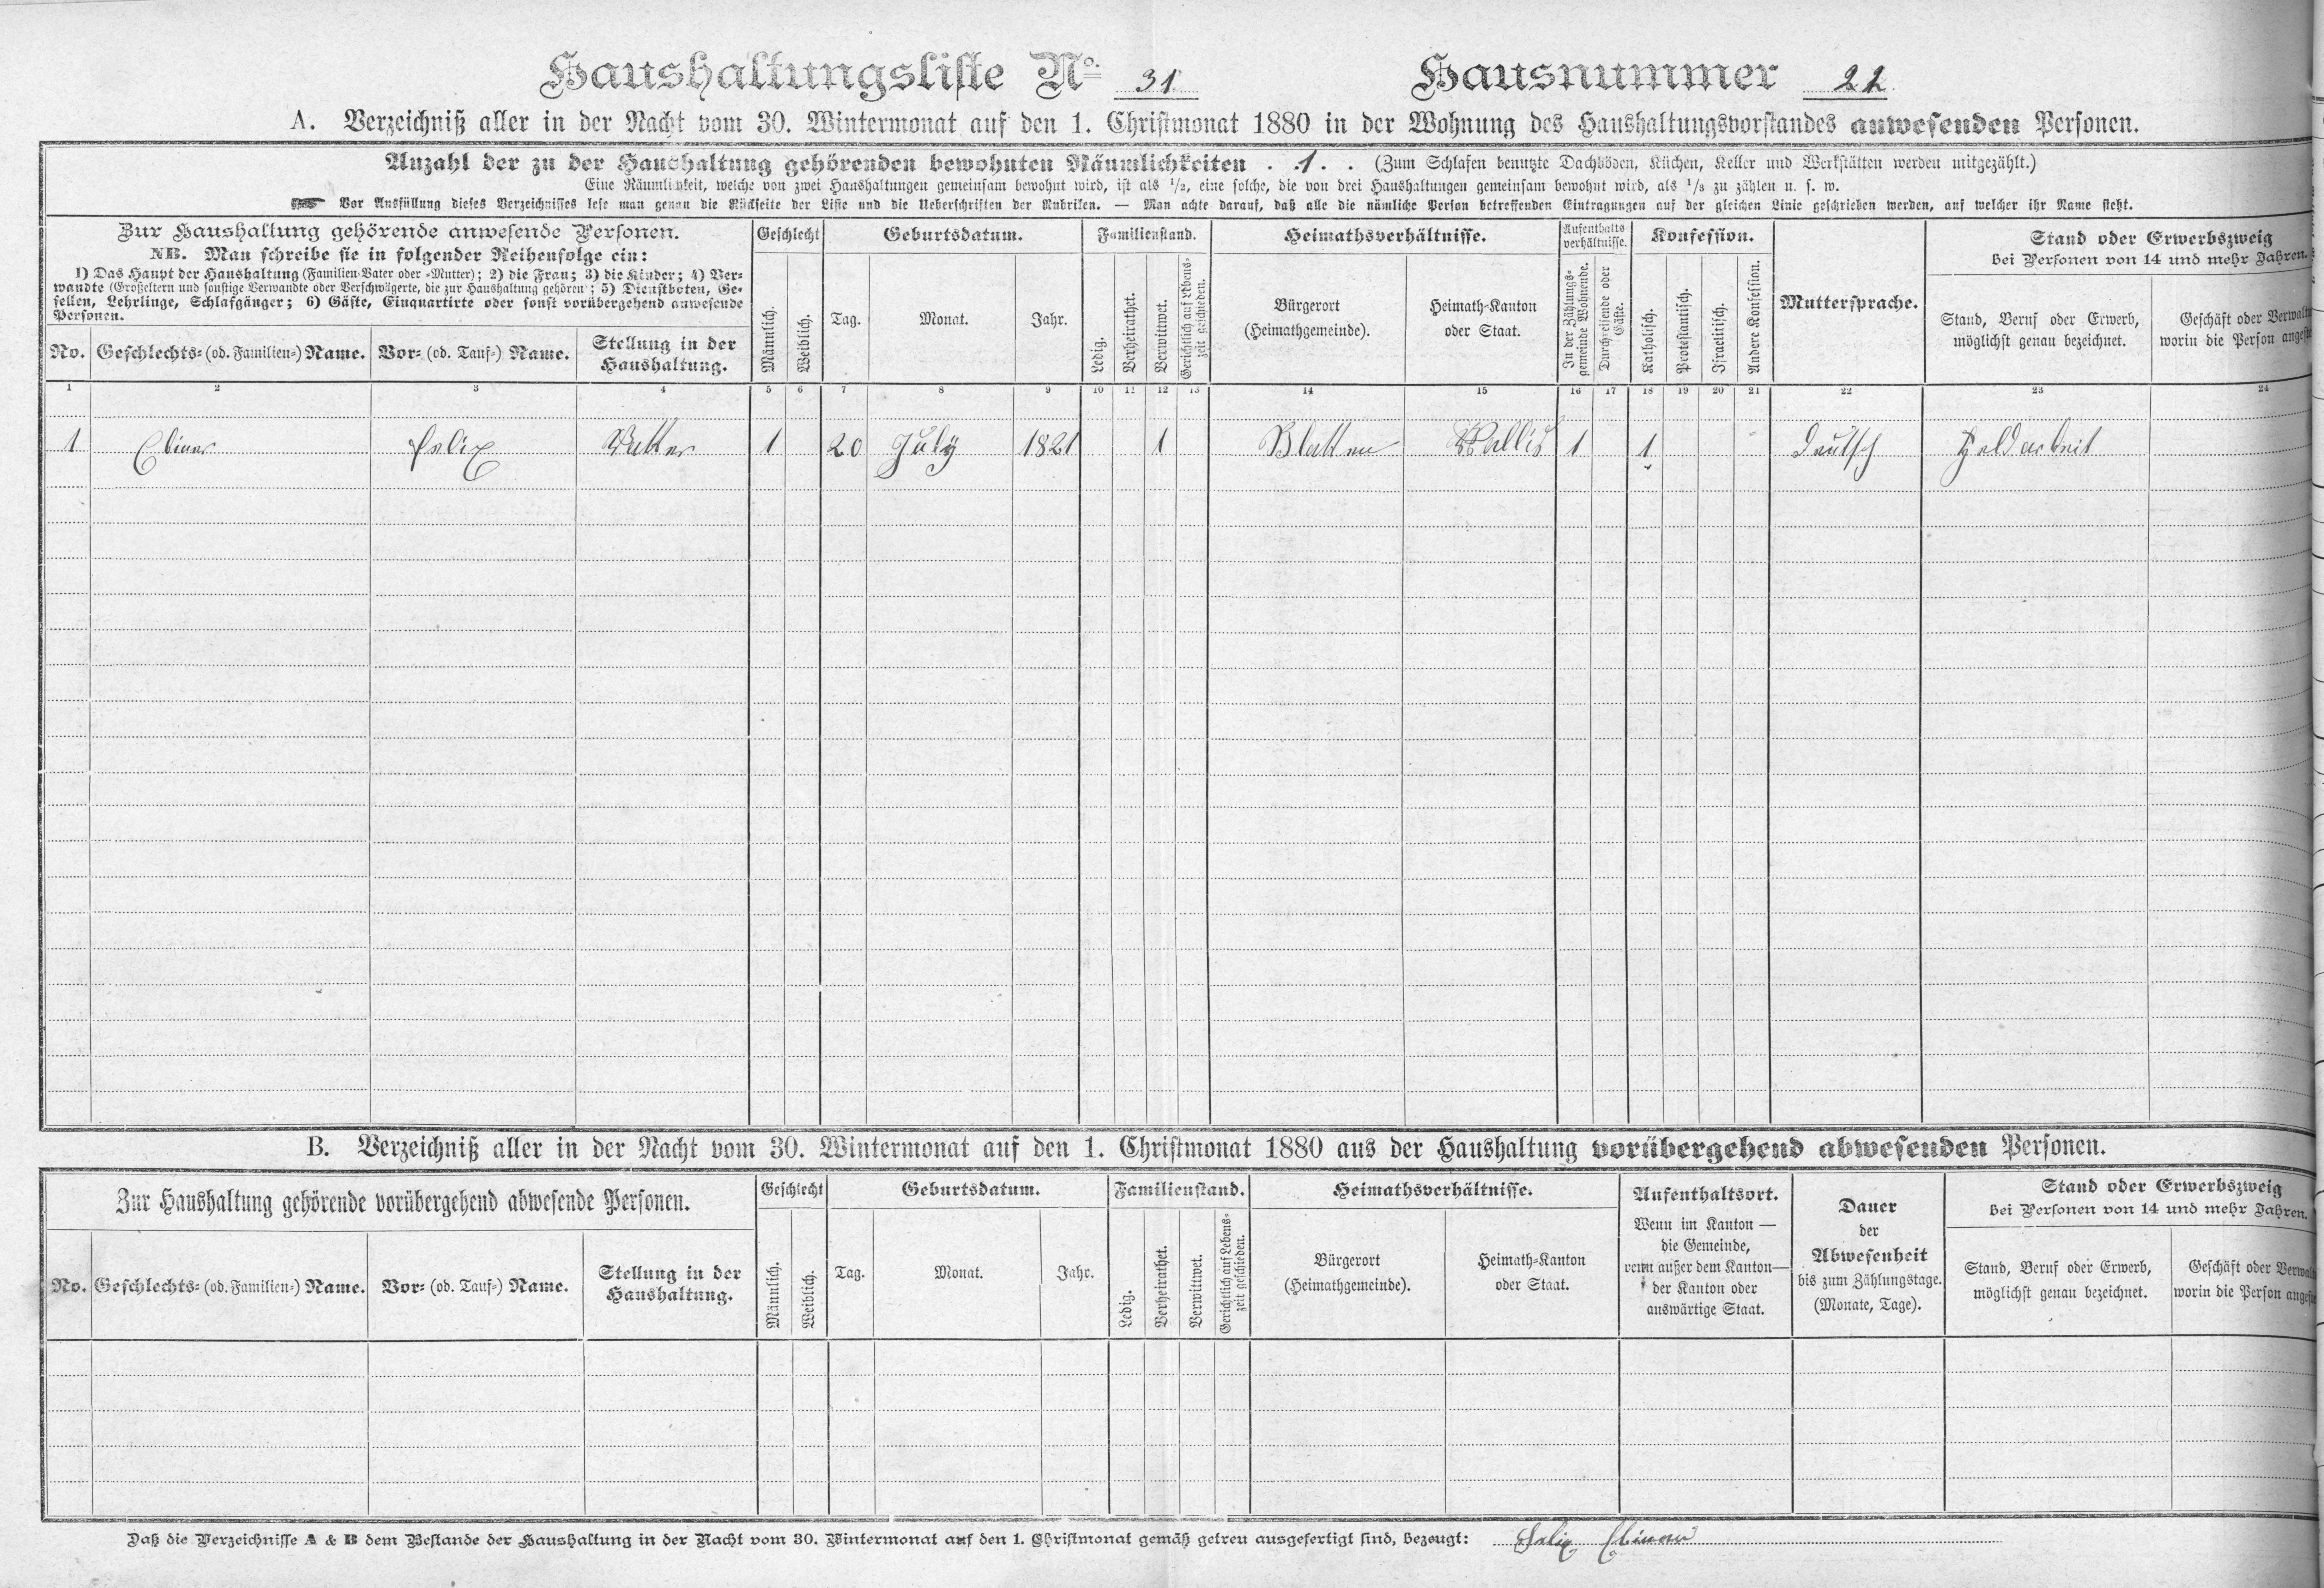 Haushaltungsliste No. 31 Hausnummer 22
A. Verzeichniß aller in der Nacht vom 30. Wintermonat auf den 1. Christmonat 1880 in der Wohnung des Haushaltungsvorstandes anwesenden Personen.
Anzahl der zu der Haushaltung gehörenden bewohnten Räumlichkeiten . 1 . . (Zum Schlafen benutzte Dachböden, Küchen, Keller und Werkstätten werden mitgezählt.)
Eine Räumlichkeit, welche von zwei Haushaltungen gemeinsam bewohnt wird, ist als 1/2, eine solche, die von drei Haushaltungen gemeinsam bewohnt wird, als 1/3 zu zählen u. s. w.
Vor Ausfüllung dieses Verzeichnisses lese man genau die Rückseite der Liste und die Ueberschriften der Rubriken. — Man achte darauf, daß alle die nämliche Person betreffenden Eintragungen auf der gleichen Linie geschrieben werden, auf welcher ihr Name steht.
Zur Haushaltung gehörende anwesende Personen.
NB. Man schreibe sie in folgender Reihenfolge ein:
1) Das Haupt der Haushaltung (Familien-Vater oder -Mutter); 2) die Frau; 3) die Kinder; 4) Ver-
wandte (Großeltern und sonstige Verwandte oder Verschwägerte, die zur Haushaltung gehören); 5) Dienstboten, Ge-
sellen, Lehrlinge, Schlafgänger; 6) Gäste, Einquartirte oder sonst vorübergehend anwesende
Personen.
No. Geschlechts- (od. Familien-) Name. Vor- (od. Tauf-) Name. Stellung in der
Haushaltung.
Geschlecht
Männlich.
Weiblich.
Geburtsdatum.
Tag. Monat. Jahr.
Familienstand.
Ledig.
Verheirathet.
Verwittwet.
Gerichtlich auf Lebens-
zeit geschieden.
Heimathsverhältnisse.
Bürgerort
(Heimathgemeinde).
Heimath-Kanton
oder Staat.
Aufenthalts
verhältnisse.
In der Zählungs-
gemeinde Wohnende.
Durchreisende oder
Gäste.
Konfession.
Katholisch.
Protestantisch.
Israelitisch.
Andere Konfession.
Muttersprache.
Stand oder Erwerbszweig
bei Personen von 14 und mehr Jahren.
Stand, Beruf oder Erwerb,
möglichst genau bezeichnet.
Geschäft oder Verwalt
worin die Person angest
1 2 3 4 5 6 7 8 9 10 11 12 13 14 15 16 17 18 19 20 21 22 23 24
1 Ebiner Felix Vatter 1 20 July 1821 1 Blatten Wallis 1 1 Deutsch Feldarbeit
B. Verzeichniß aller in der Nacht vom 30. Wintermonat auf den 1. Christmonat 1880 aus der Haushaltung vorübergehend abwesenden Personen.
Zur Haushaltung gehörende vorübergehend abwesende Personen.
No. Geschlechts- (od. Familien-) Name. Vor- (od. Tauf-) Name. Stellung in der
Haushaltung.
Geschlecht
Männlich.
Weiblich.
Geburtsdatum.
Tag. Monat. Jahr.
Familienstand.
Ledig.
Verheirathet.
Verwittwet.
Gerichtlich auf Lebens-
zeit geschieden.
Heimathsverhältnisse.
Bürgerort
(Heimathgemeinde).
Heimath-Kanton
oder Staat.
Aufenthaltsort.
Wenn im Kanton —
die Gemeinde,
wenn außer dem Kanton—
der Kanton oder
auswärtige Staat.
Dauer
der
Abwesenheit
bis zum Zählungstage.
(Monate, Tage).
Stand oder Erwerbszweig
bei Personen von 14 und mehr Jahren.
Stand, Beruf oder Erwerb,
möglichst genau bezeichnet.
Geschäft oder Verwal
worin die Person angest
Daß die Verzeichnisse A & B dem Bestande der Haushaltung in der Nacht vom 30. Wintermonat auf den 1. Christmonat gemäß getreu ausgefertigt sind, bezeugt: Felix Ebiner